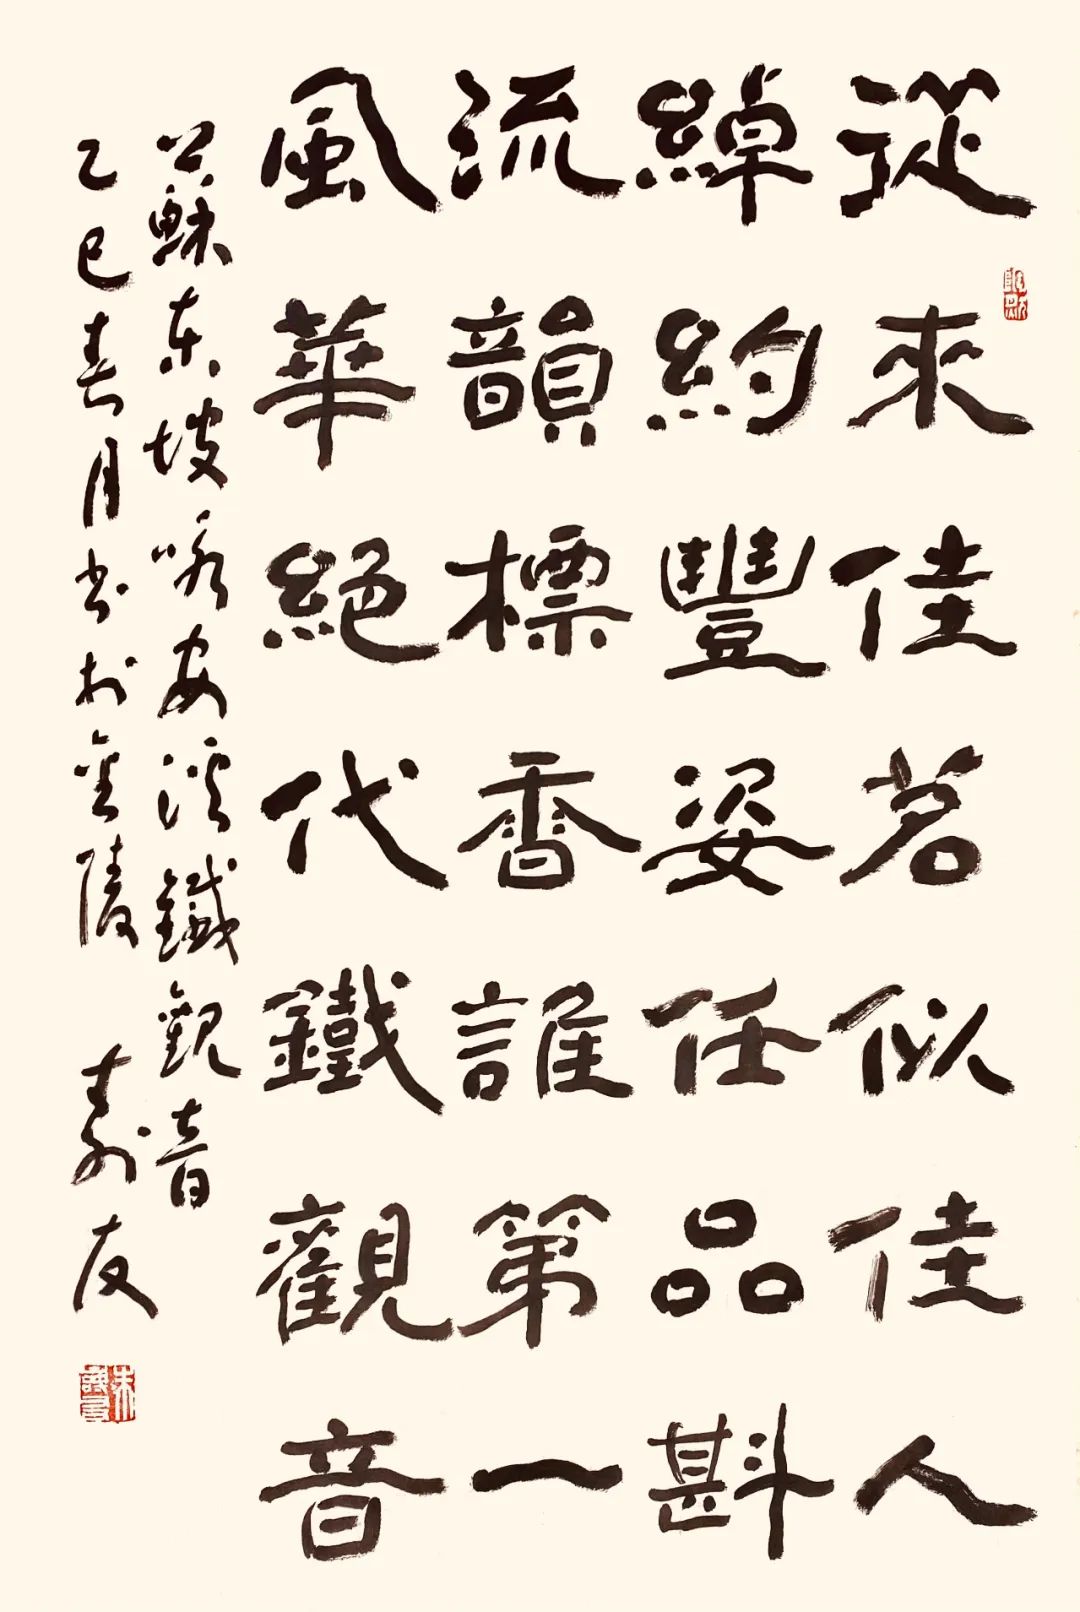 從來佳茗似佳人
綽約豐姿任品斟
流韻標香誰第一
風華絕代鐵觀音
蘇東坡咏安溪鐵觀音
乙巳春月書於金陵 壽友